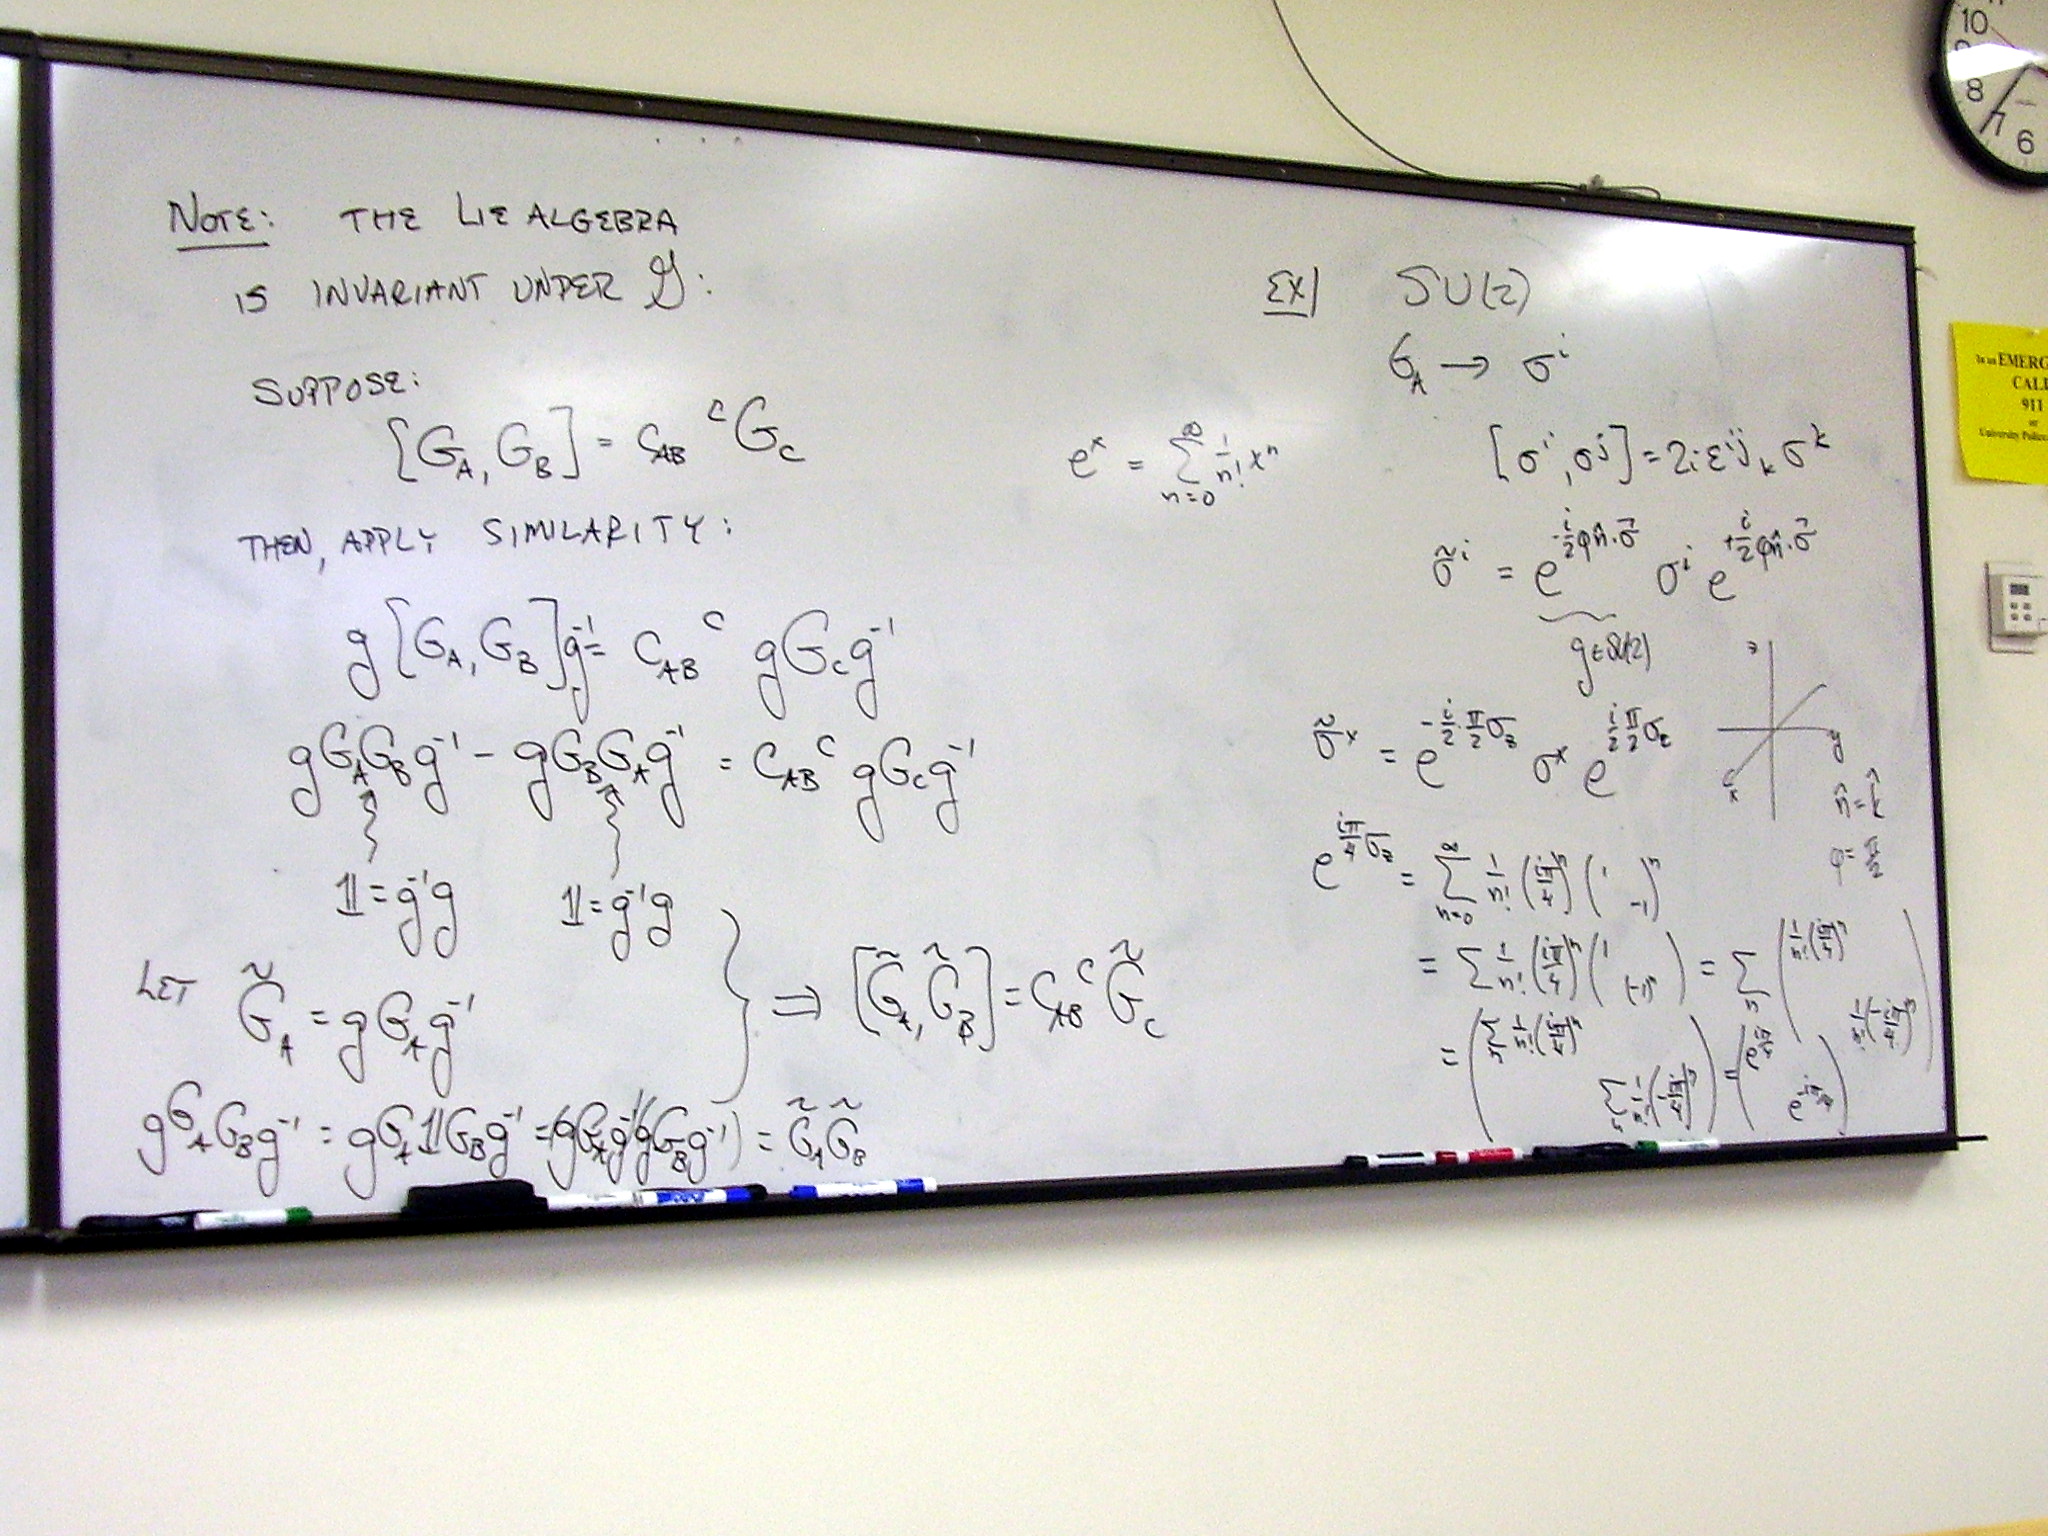 NOTE: THE LIE ALGEBRA
IS INVARIANT UNDER 𝒢:
SUPPOSE:
[G_A, G_B] = C_AB^C G_C
THEN, APPLY SIMILARITY:
g[G_A, G_B]g^-1 = C_AB^C g G_C g^-1
g G_A G_B g^-1 - g G_B G_A g^-1 = C_AB^C g G_C g^-1
𝟙 = g^-1 g 𝟙 = g^-1 g
LET G̃_A = g G_A g^-1
} ⇒ [G̃_A, G̃_B] = C_AB^C G̃_C
g G_A G_B g^-1 = g G_A 𝟙 G_B g^-1 = (g G_A g^-1)(g G_B g^-1) = G̃_A G̃_B
e^x = Σ_{n=0}^∞ 1/n! x^n
EX) SU(2)
G_A → σ^i
[σ^i, σ^j] = 2i ε^ij_k σ^k
σ̃^i = e^{-i/2 φ n̂·σ⃗} σ^i e^{+i/2 φ n̂·σ⃗}
g ∈ SU(2)
z
y
x
n̂ = k̂
φ = π/2
σ̃^x = e^{-i/2·π/2 σ_z} σ^x e^{i/2 π/2 σ_z}
e^{iπ/4 σ_z} = Σ_{n=0}^∞ 1/n! (iπ/4)^n (1 -1)^n
= Σ 1/n! (iπ/4)^n (1 (-1)^n) = Σ_n (1/n! (iπ/4)^n 1/n! (-iπ/4)^n)
= (Σ_n 1/n! (iπ/4)^n Σ_n 1/n! (-iπ/4)^n) = (e^{iπ/4} e^{-iπ/4})
10
9
8
7
6
In an EMERG
CALL
911
or
University Police